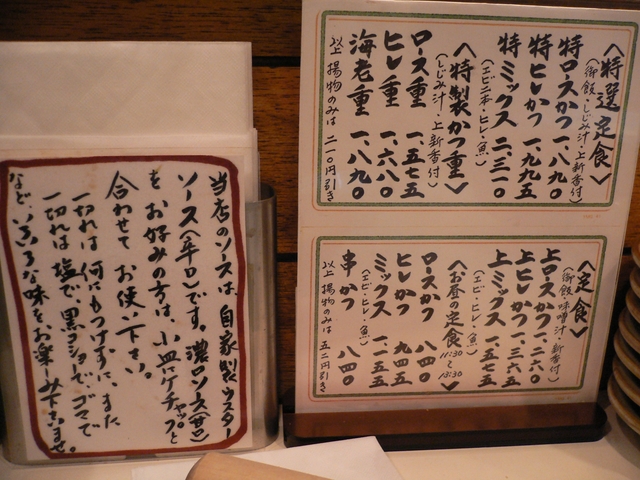 当店のソースは自家製ウスター
ソース(辛口)です。濃ロソース(甘口)
をお好みの方は、小皿にケチャップと
合わせてお使い下さい。
一切れは何にもつけずに、また
一切れは塩で、黒コショーで、ゴマで
など、いろいろな味をお楽しみ下さいませ。
〈特選定食〉
(御飯・しじみ汁・上新香付)
特ロースかつ 一、八九〇
特ヒレかつ 一、九九五
特ミックス 二、三一〇
(エビ二本・ヒレ・魚)
〈特製かつ重〉
(しじみ汁・上新香付)
ロース重 一、五七五
ヒレ重 一、六八〇
海老重 一、八九〇
以上 揚物のみは 二一〇円引き
〈定食〉
(御飯・味噌汁・新香付)
上ロースかつ 一、二六〇
上ヒレかつ 一、三六五
上ミックス 一、五七五
(エビ・ヒレ・魚)
〈お昼の定食〉 11:30〜13:30
ロースかつ 八四〇
ヒレかつ 九四五
ミックス 一、一五五
(エビ・ヒレ・魚)
串かつ 八四〇
以上 揚物のみは 五二円引き